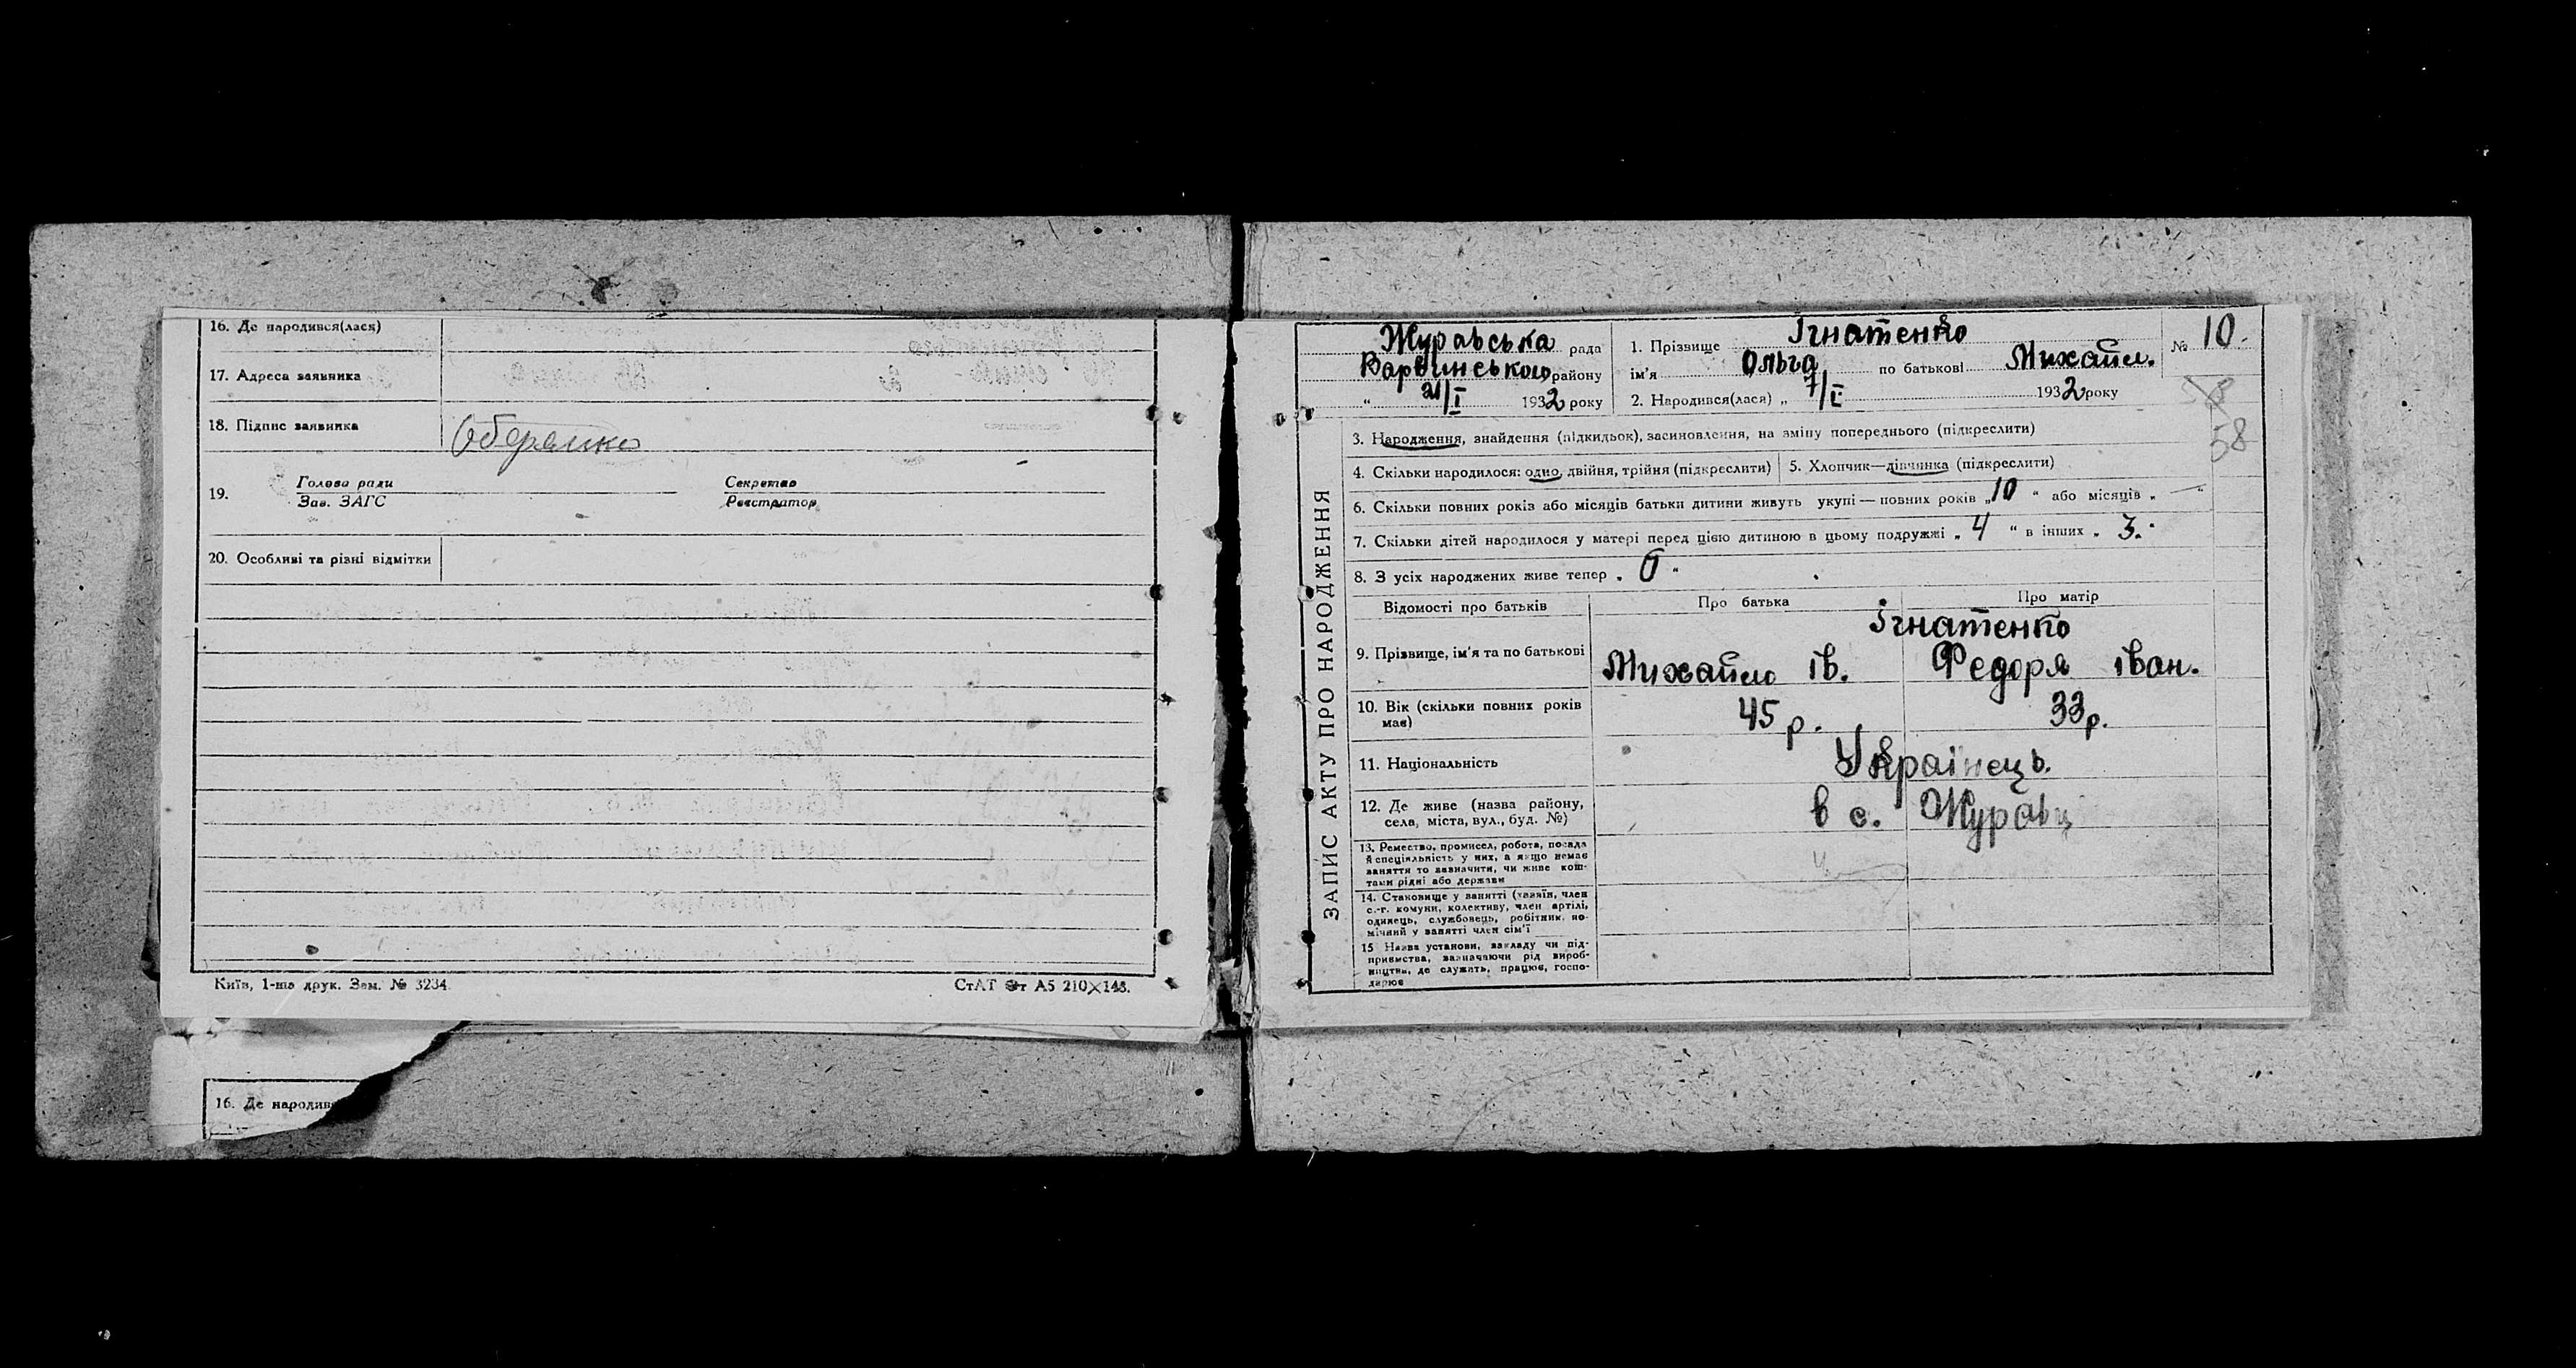 16. Де народився(лася)
17. Адреса заявника
18. Підпис заявника
19. Голова ради Секретар
Зав. ЗАГС Реєстратор
20. Особливі та різні відмітки
Київ, 1-ша друк. Зам. № 3234.
СтАТ Фт А5 210×148.
16. Де народив
ЗАПИС АКТУ ПРО НАРОДЖЕННЯ
Журавська рада
Варвинського району
" 21/I 1932 року
1. Прізвище Ігнатенко
ім'я Ольга по батькові Михайл.
2. Народився(лася) „ 7/I 1932 року
№ 10.
58
3. Народження, знайдення (підкидьок), засиновлення, на зміну попереднього (підкреслити)
4. Скільки народилося: одно, двійня, трійня (підкреслити) 5. Хлопчик—дівчинка (підкреслити)
6. Скільки повних років або місяців батьки дитини живуть укупі — повних років „10" або місяців „ — "
7. Скільки дітей народилося у матері перед цією дитиною в цьому подружжі „ 4 " в інших „ 3.
8. З усіх народжених живе тепер „ 6 "
Відомості про батьків Про батька Про матір
Ігнатенко
9. Прізвище, ім'я та по батькові Михайло Ів. Федоря Іван.
10. Вік (скільки повних років має) 45 р. 33 р.
11. Національність Українець.
12. Де живе (назва району, села, міста, вул., буд. №) в с. Журавц
13. Ремество, промисел, робота, посада
й спеціяльність у них, а якщо немає
заняття то зазначити, чи живе кош-
тами рідні або держави
14. Становище у занятті (хазяїн, член
с.-г. комуни, колективу, член артілі,
одинець, службовець, робітник, по-
мічний у занятті член сім'ї
15 Назва установи, закладу чи під-
приємства, зазначаючи рід вироб-
ництва, де служать, працює, госпо-
дарює